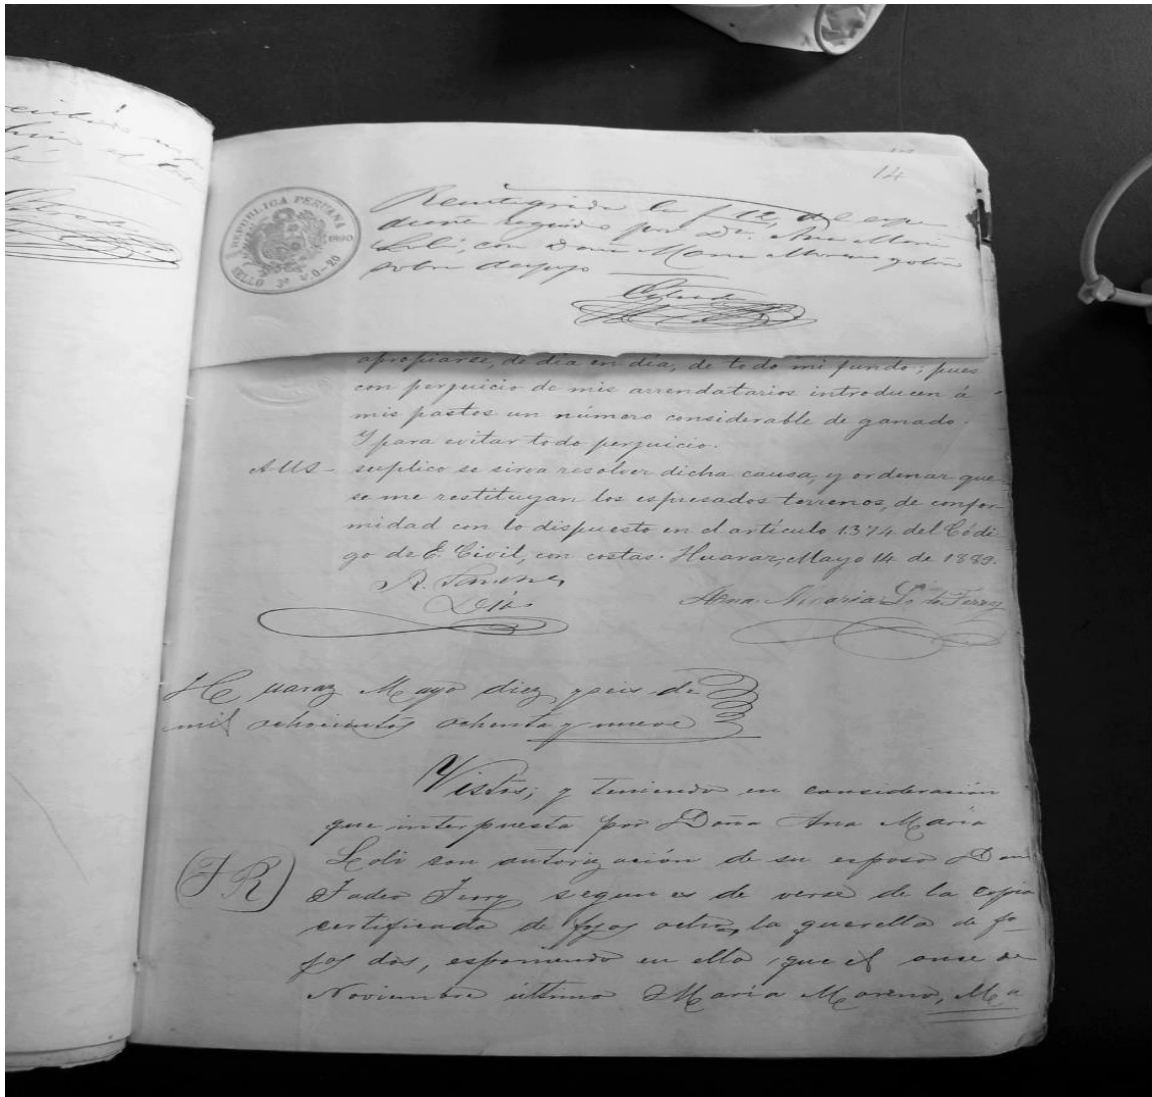 14
REPUBLICA PERUANA
SELLO 3º V. 0-20
Reintegrado la f 12, del expe
diente seguido por Dª. Ana María
Loli; con Doña María Moreno y otros
sobre despojo
apropiarse, de dia en dia, de todo mi fundo; pues
con perjuicio de mis arrendatarios introducen á
mis pastos un número considerable de ganado.
Y para evitar todo perjuicio.
A US - suplico se sirva resolver dicha causa, y ordenar que
se me restituyan los espresados terrenos, de confor-
midad con lo dispuesto en el artículo 1374 del Códi-
go de E. Civil, con costas. Huaraz, Mayo 14 de 1889.
Ana María L. de Terry
Huaraz Mayo diez y seis de
mil ochocientos ochenta y nueve
Vistos; y teniendo en consideración
que interpuesta por Doña Ana María
Loli con autorización de su esposo Don
Tadeo Terry segun es de verse de la copia
certificada de fojas ocho, la querella de fo-
jas dos, esponiendo en ella que el once de
Noviembre último María Moreno, Ma